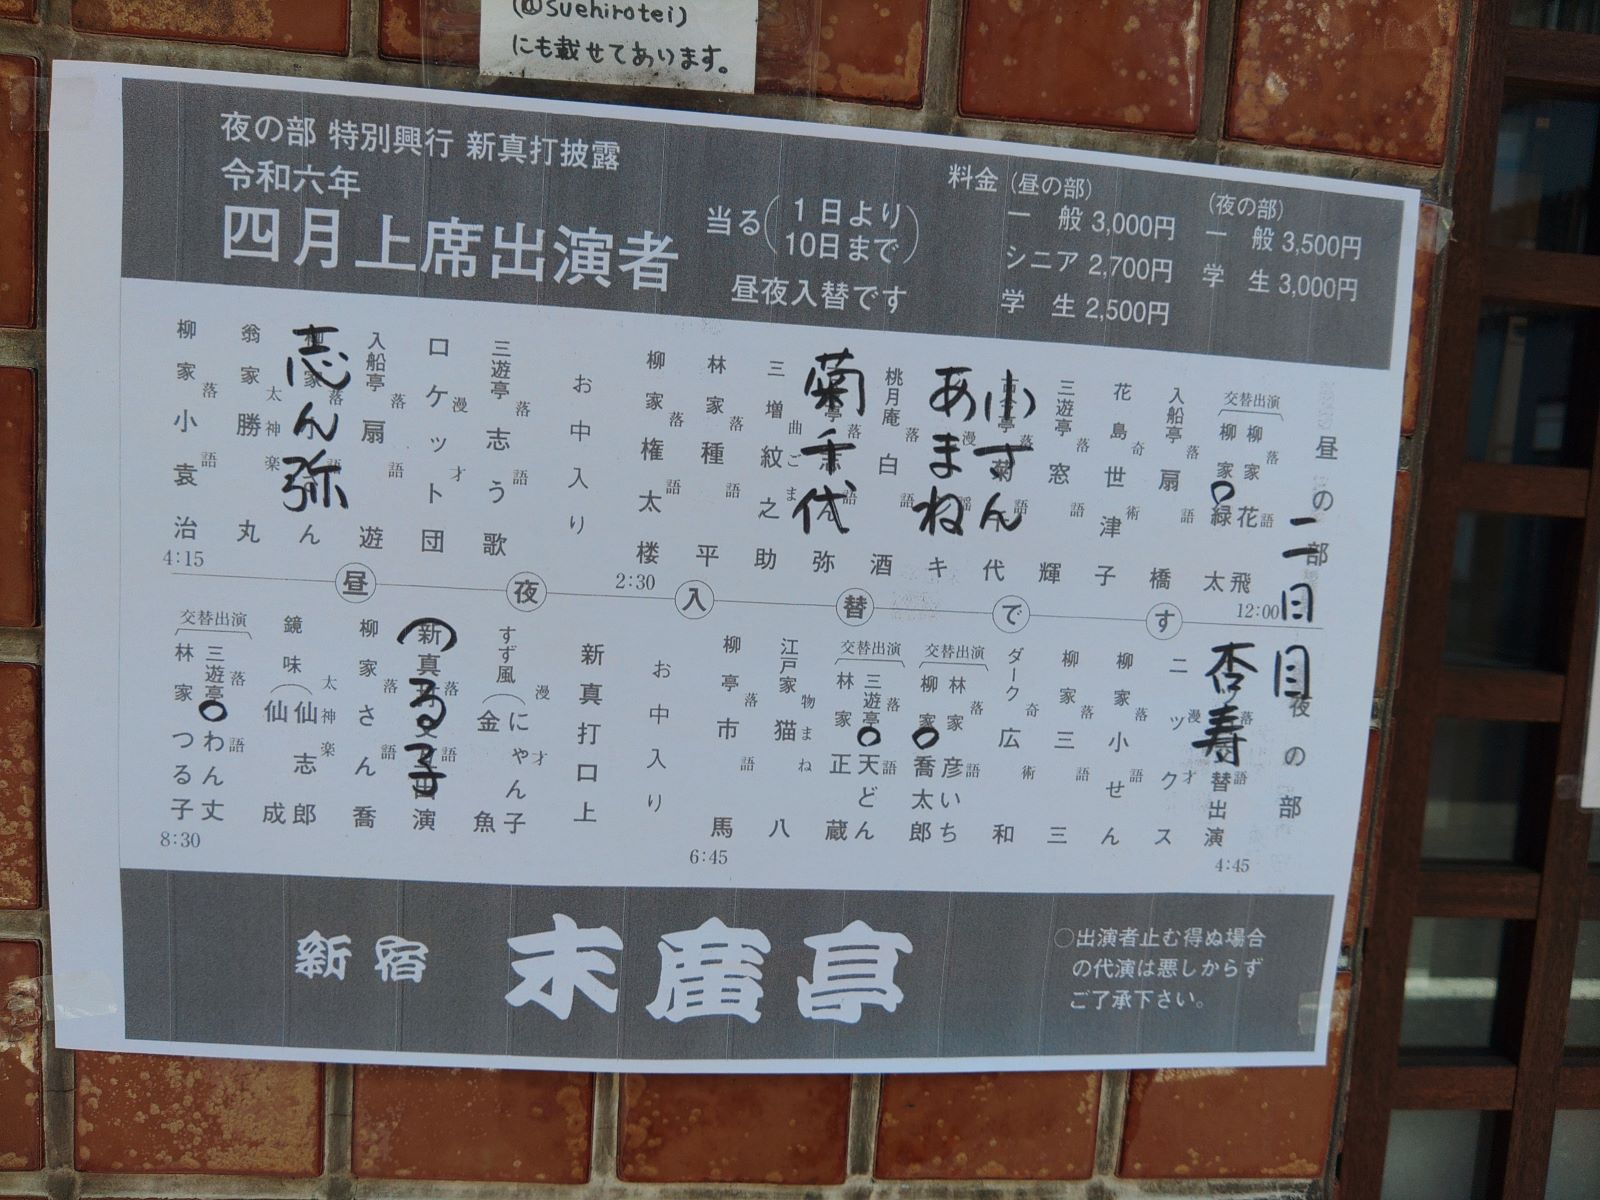 (@suehirotei)
にも載せてあります。
夜の部 特別興行 新真打披露
令和六年
四月上席出演者
当る(1日より
10日まで)
昼夜入替です
料金 (昼の部)
一 般 3,000円
シニア 2,700円
学 生 2,500円
(夜の部)
一 般 3,500円
学 生 3,000円
二日目
昼の部
12:00
交替出演
落語
柳家花飛
柳家緑太
入船亭扇橋 落語
花島世津子 奇術
三遊亭窓輝 落語
小すん
あまね
桃月庵白酒 落語
菊千代
三増紋之助 曲ごま
林家種平 落語
柳家権太楼 落語
2:30
お中入り
三遊亭志う歌 落語
ロケット団 漫才
入船亭扇遊 落語
志ん弥
翁家勝丸 太神楽
柳家小袁治 落語
4:15
昼夜入替です
夜の部
4:45
杏寿
ニックス 漫才
柳家小せん 落語
柳家三三 落語
ダーク広和 奇術
交替出演
落語
林家彦いち
柳家喬太郎
交替出演
落語
三遊亭天どん
林家正蔵
江戸家猫八 物まね
柳亭市馬 落語
6:45
お中入り
新真打口上
すず風 にゃん子 金魚 漫才
つる子
柳家さん喬 落語
鏡味 仙志郎 仙成 太神楽
交替出演
落語
三遊亭わん丈
林家つる子
8:30
新宿 末廣亭
○出演者止む得ぬ場合
の代演は悪しからず
ご了承下さい。